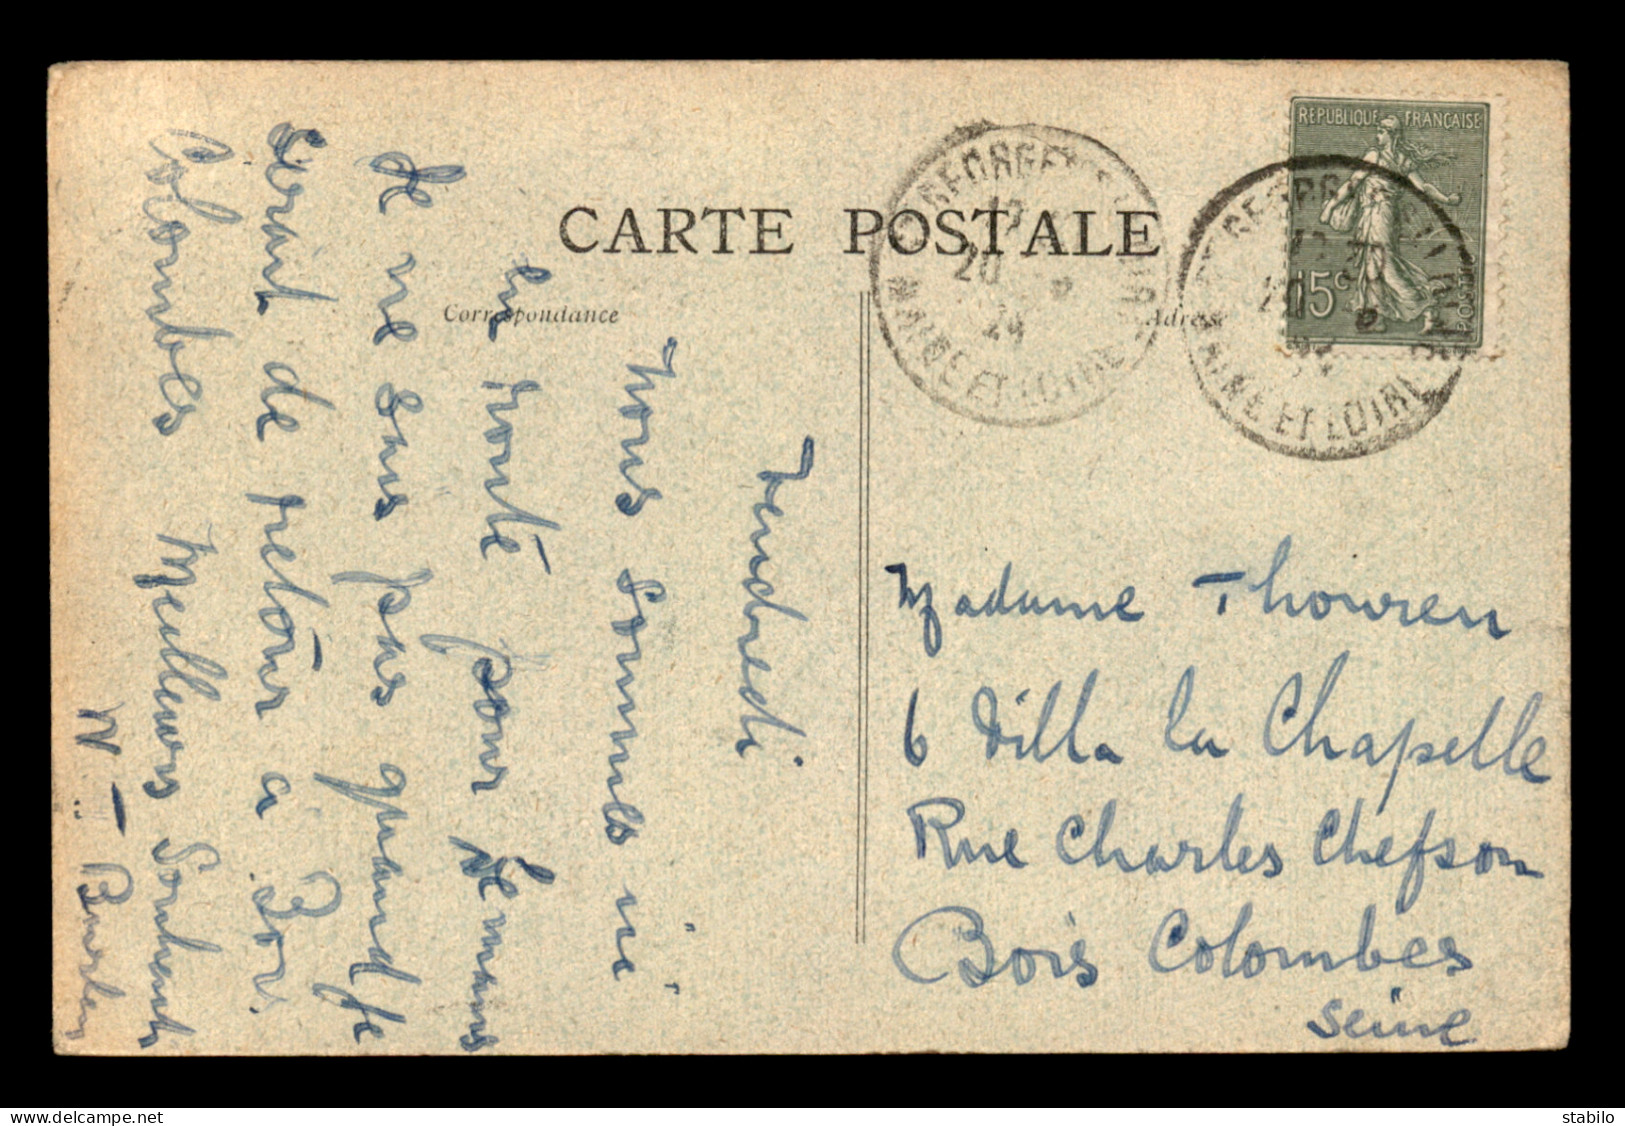 CARTE POSTALE
Correspondance
Adresse
REPUBLIQUE FRANÇAISE
15c
POSTES
20
24
MAINE ET LOIRE
MAINE ET LOIRE
Vendredi
Nous sommes ici
en route pour
Je ne sais pas quand je
serait de retour a Bor.
Colombes Meilleurs Souhaits
Madame Thouren
6 Villa la Chapelle
Rue Charles Chefson
Bois Colombes
Seine
stabilo